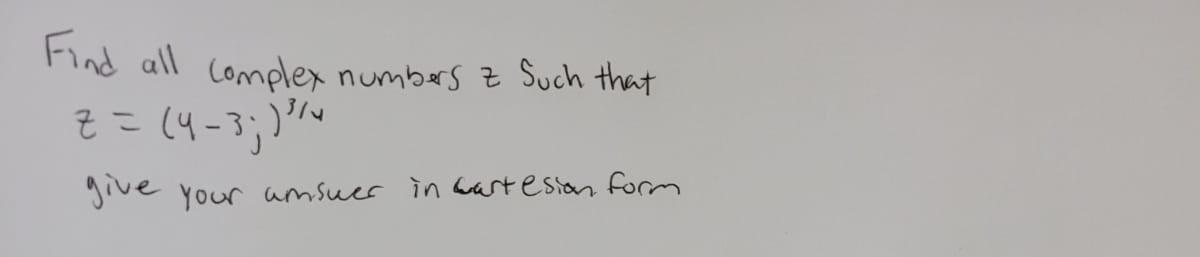 Find all complex numbers z Such that
z = (4-3j)^3/4
give your amsuer in cartesian form